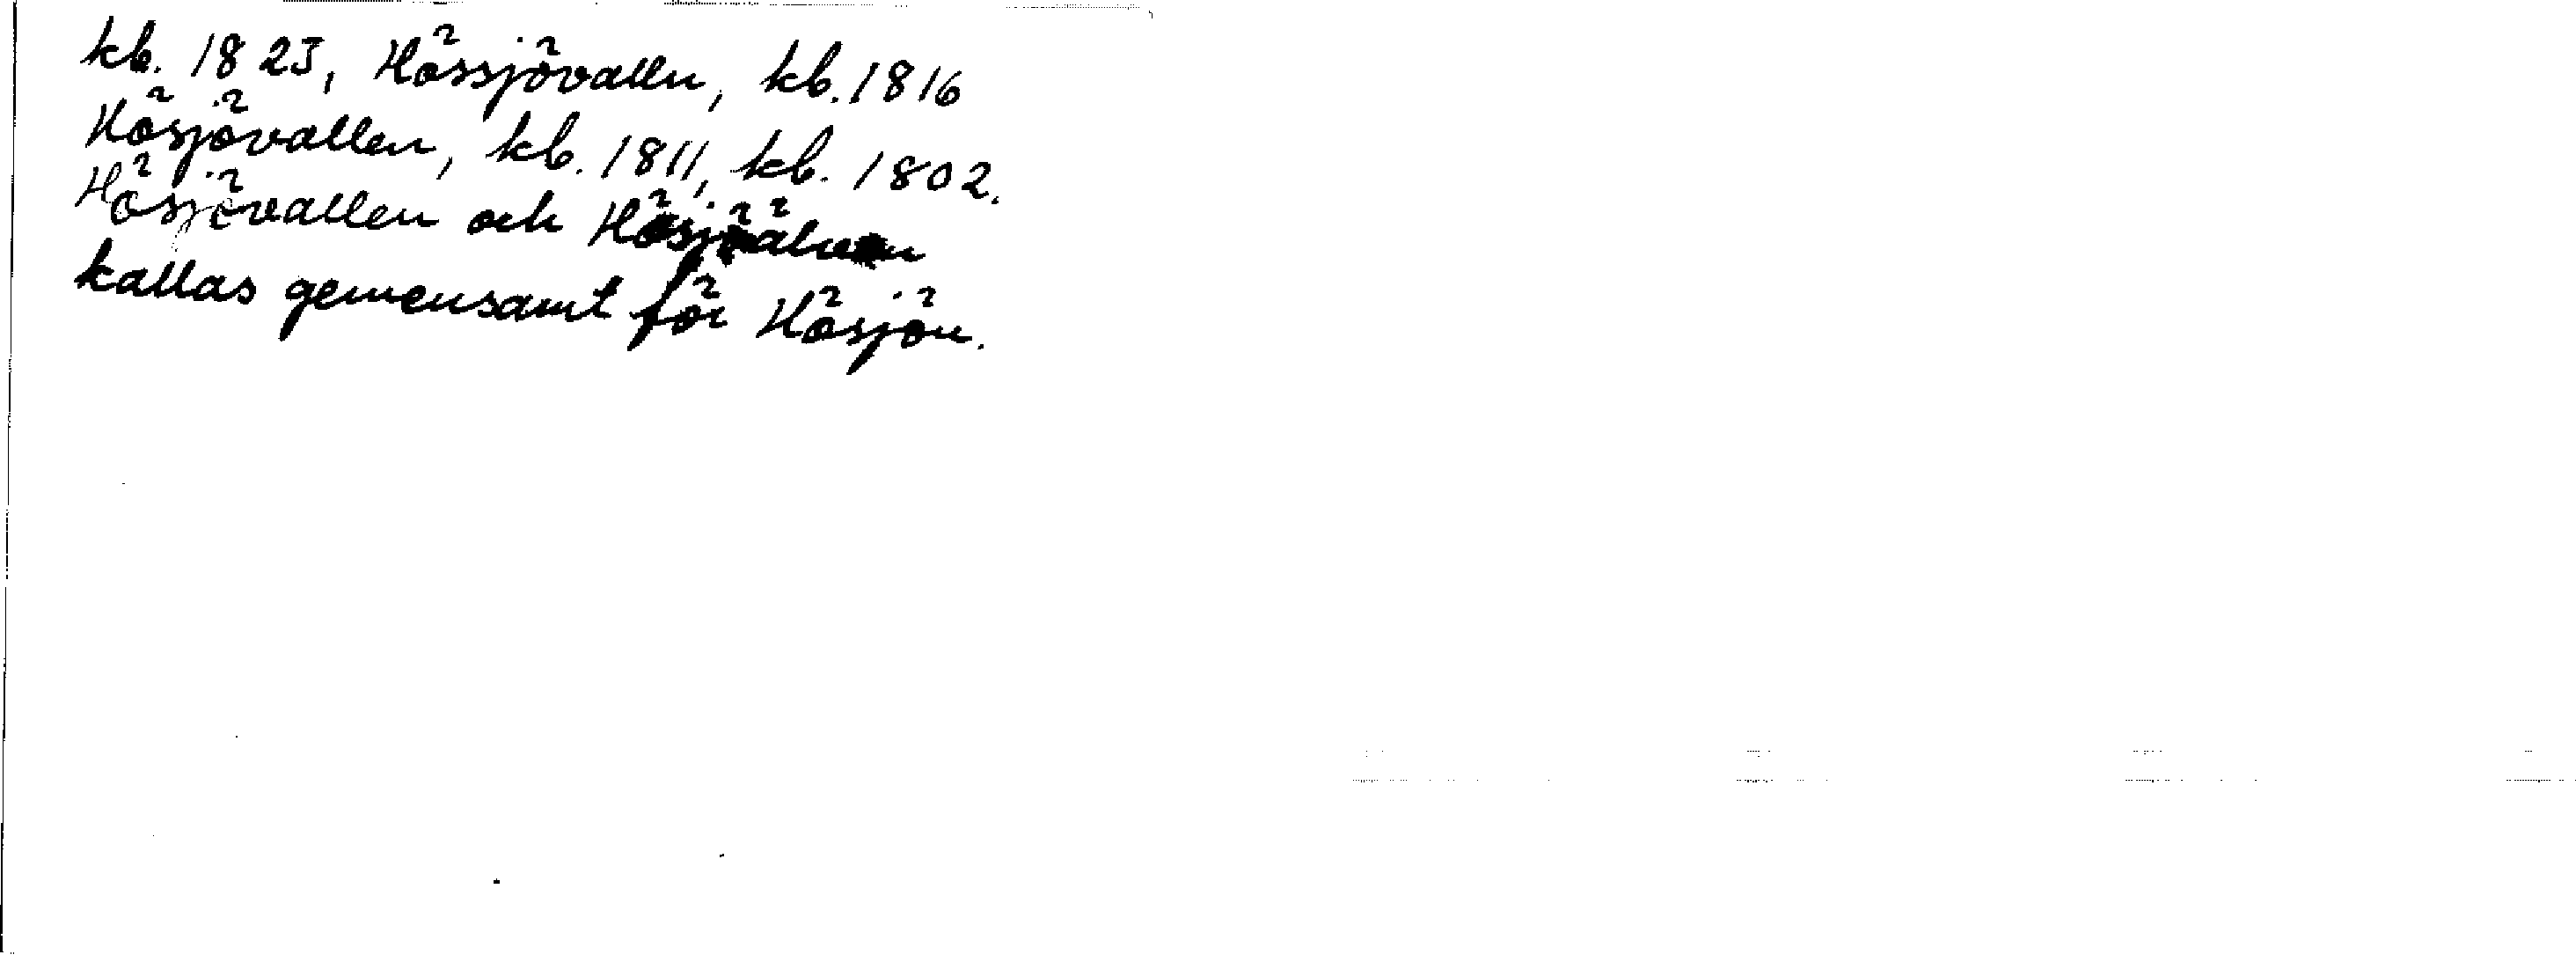 kb. 1823, Hössjövallen, kb. 1816
Hösjövallen, kb. 1811, kb. 1802.
Hösjövallen och Hösjöälven
kallas gemensamt för Hösjön.